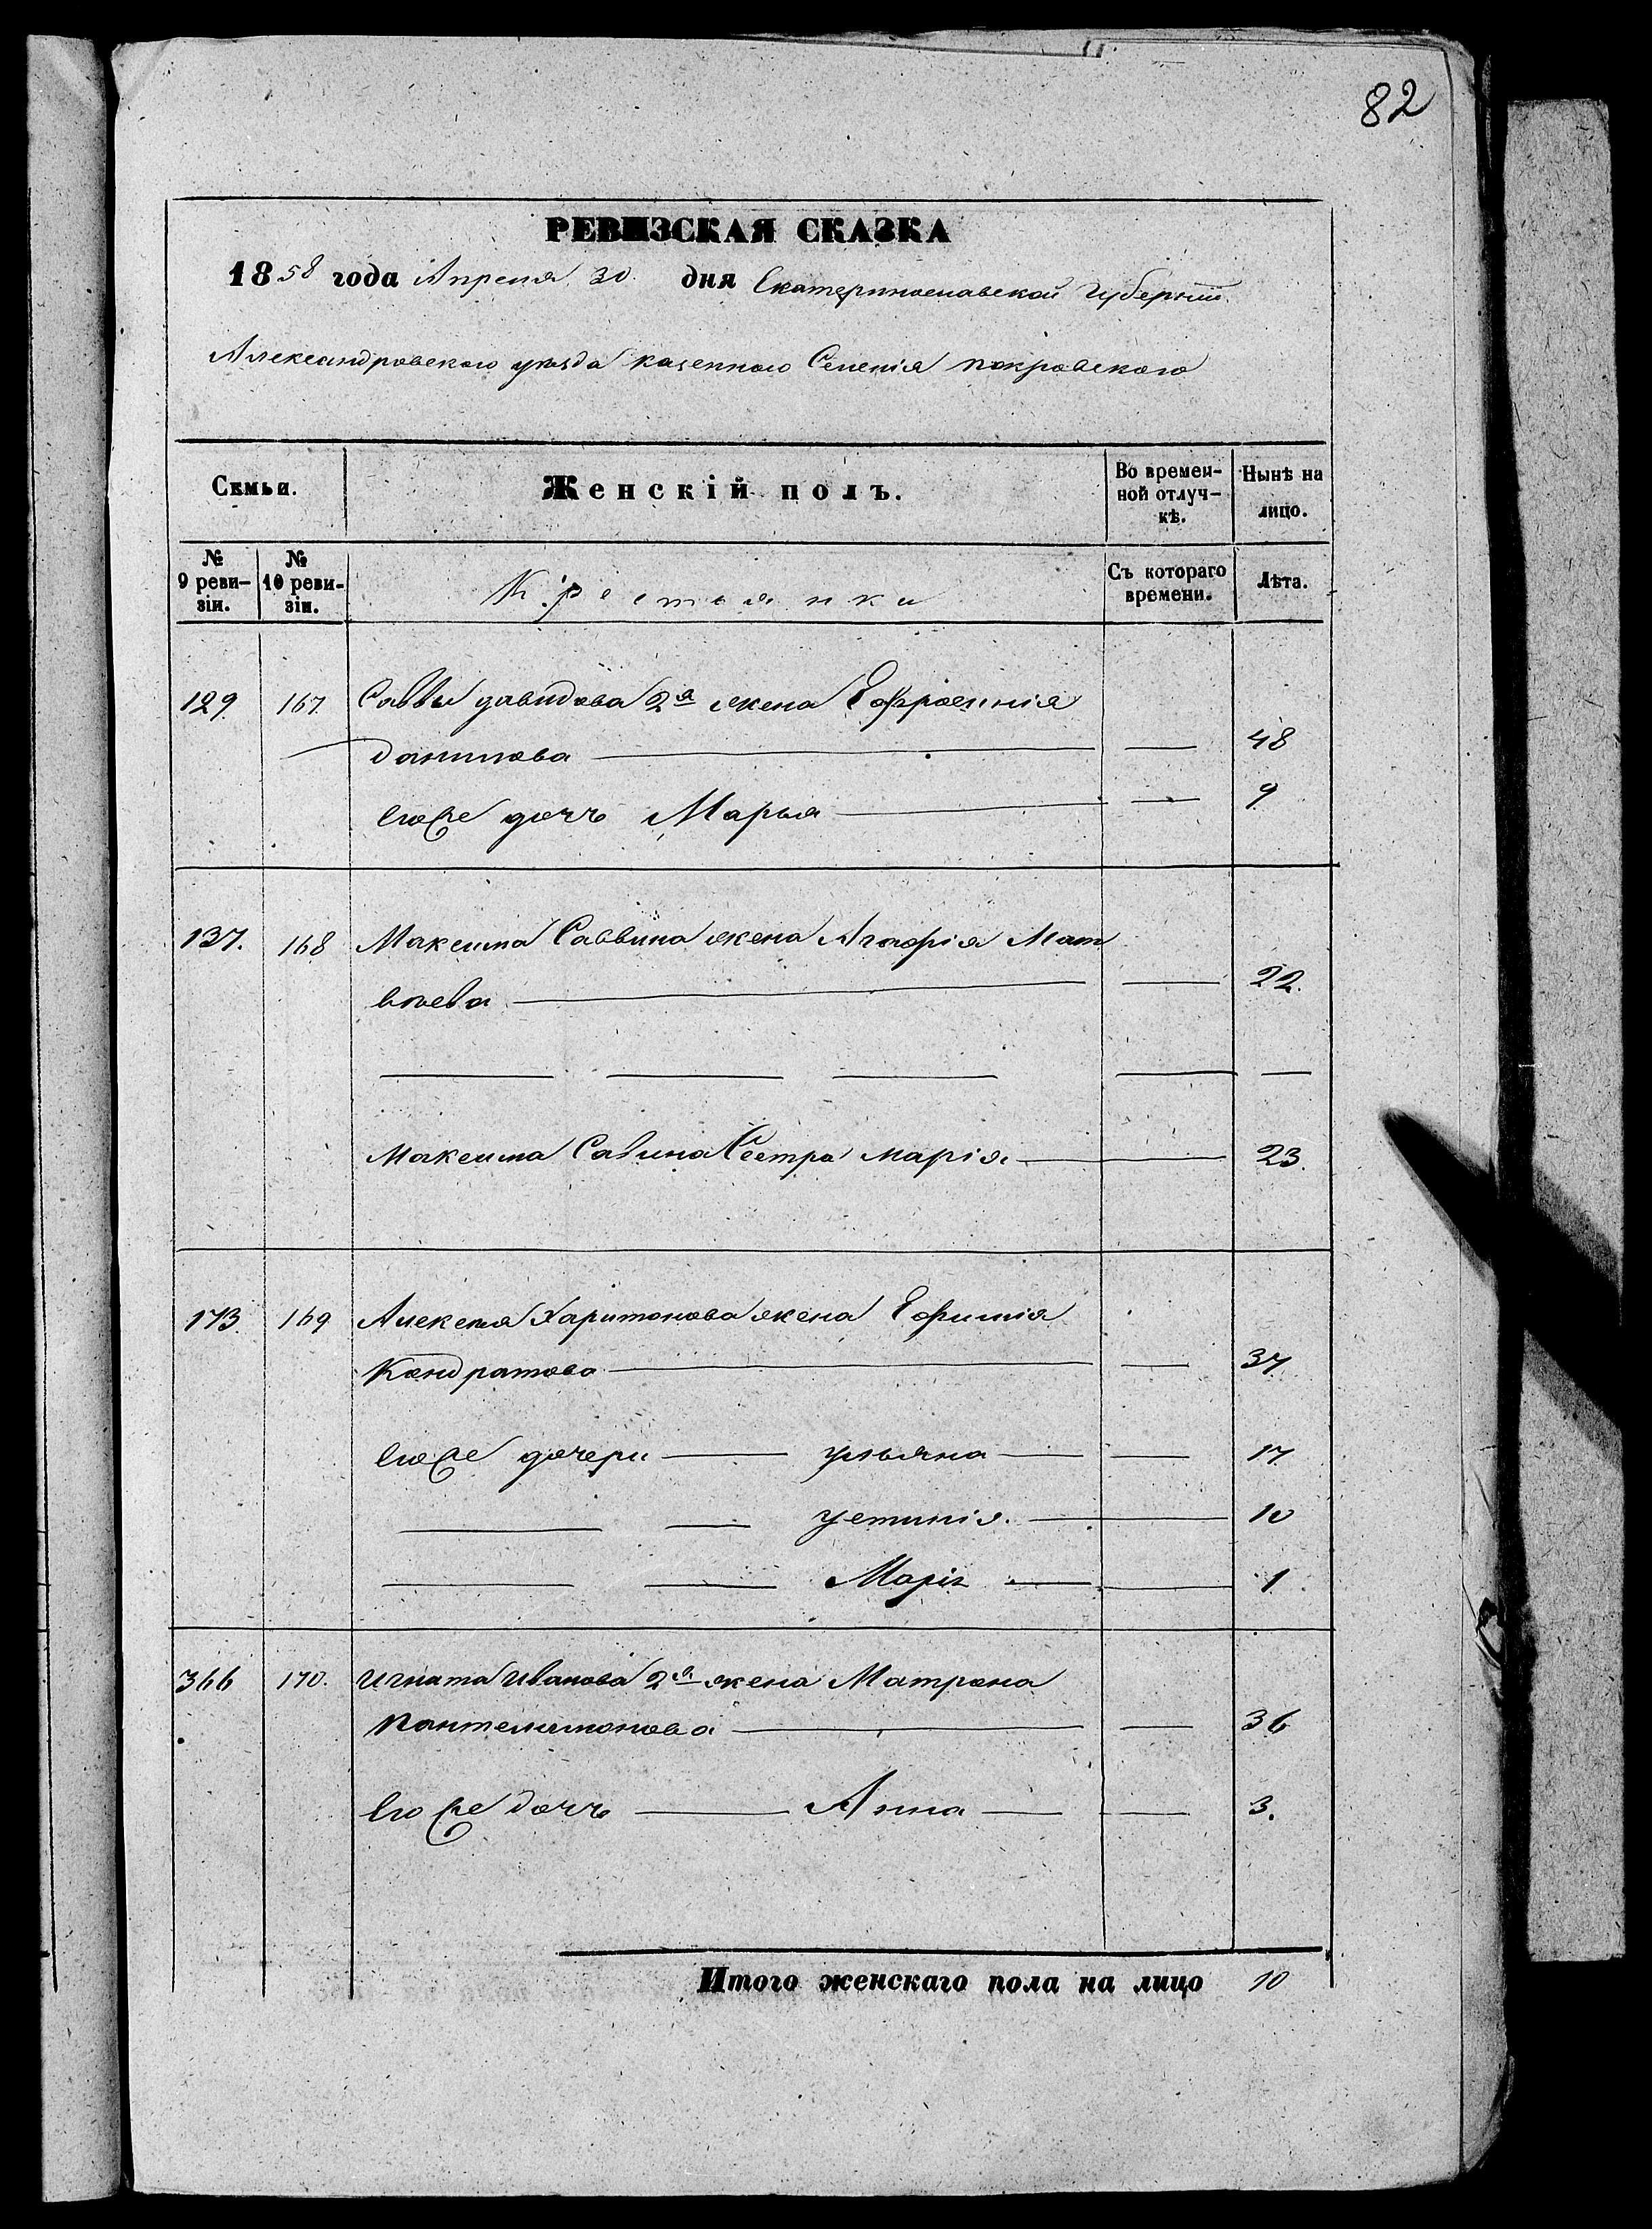 82
РЕВИЗСКАЯ СКАЗКА
1858 года Апреля 30. дня Екатеринославской Губернiи
Александровского уезда казенного Селенiя покровского
Семьи.
Женскiй полъ.
Во времен-
ной отлуч-
кѣ.
Нынѣ на
лицо.
№
9 реви-
зiи.
№
10 реви-
зiи.
Крестьянки
Съ котораго
времени.
Лѣта.
129. 167. Саввы давидова 2я жена Ефросинiя
данилова — — 48
Ево же дочь Марья — — 9
137. 168 Максима Саввина жена Агафiя Мат
веева — — 22.
— — — — —
Максима Савина Сестра марiя — 23.
173. 169 Алексея Харитонова жена Ефимiя
Кондратова — — 37.
Ево же дочери — ульяна — — 17
— — устинiя. — 10
— — Марiя — — 1
366 170. игната иванова 2я жена Матрона
пантелимонова — — 36
Ево же дочь — Анна — — 3.
Итого женскаго пола на лицо 10